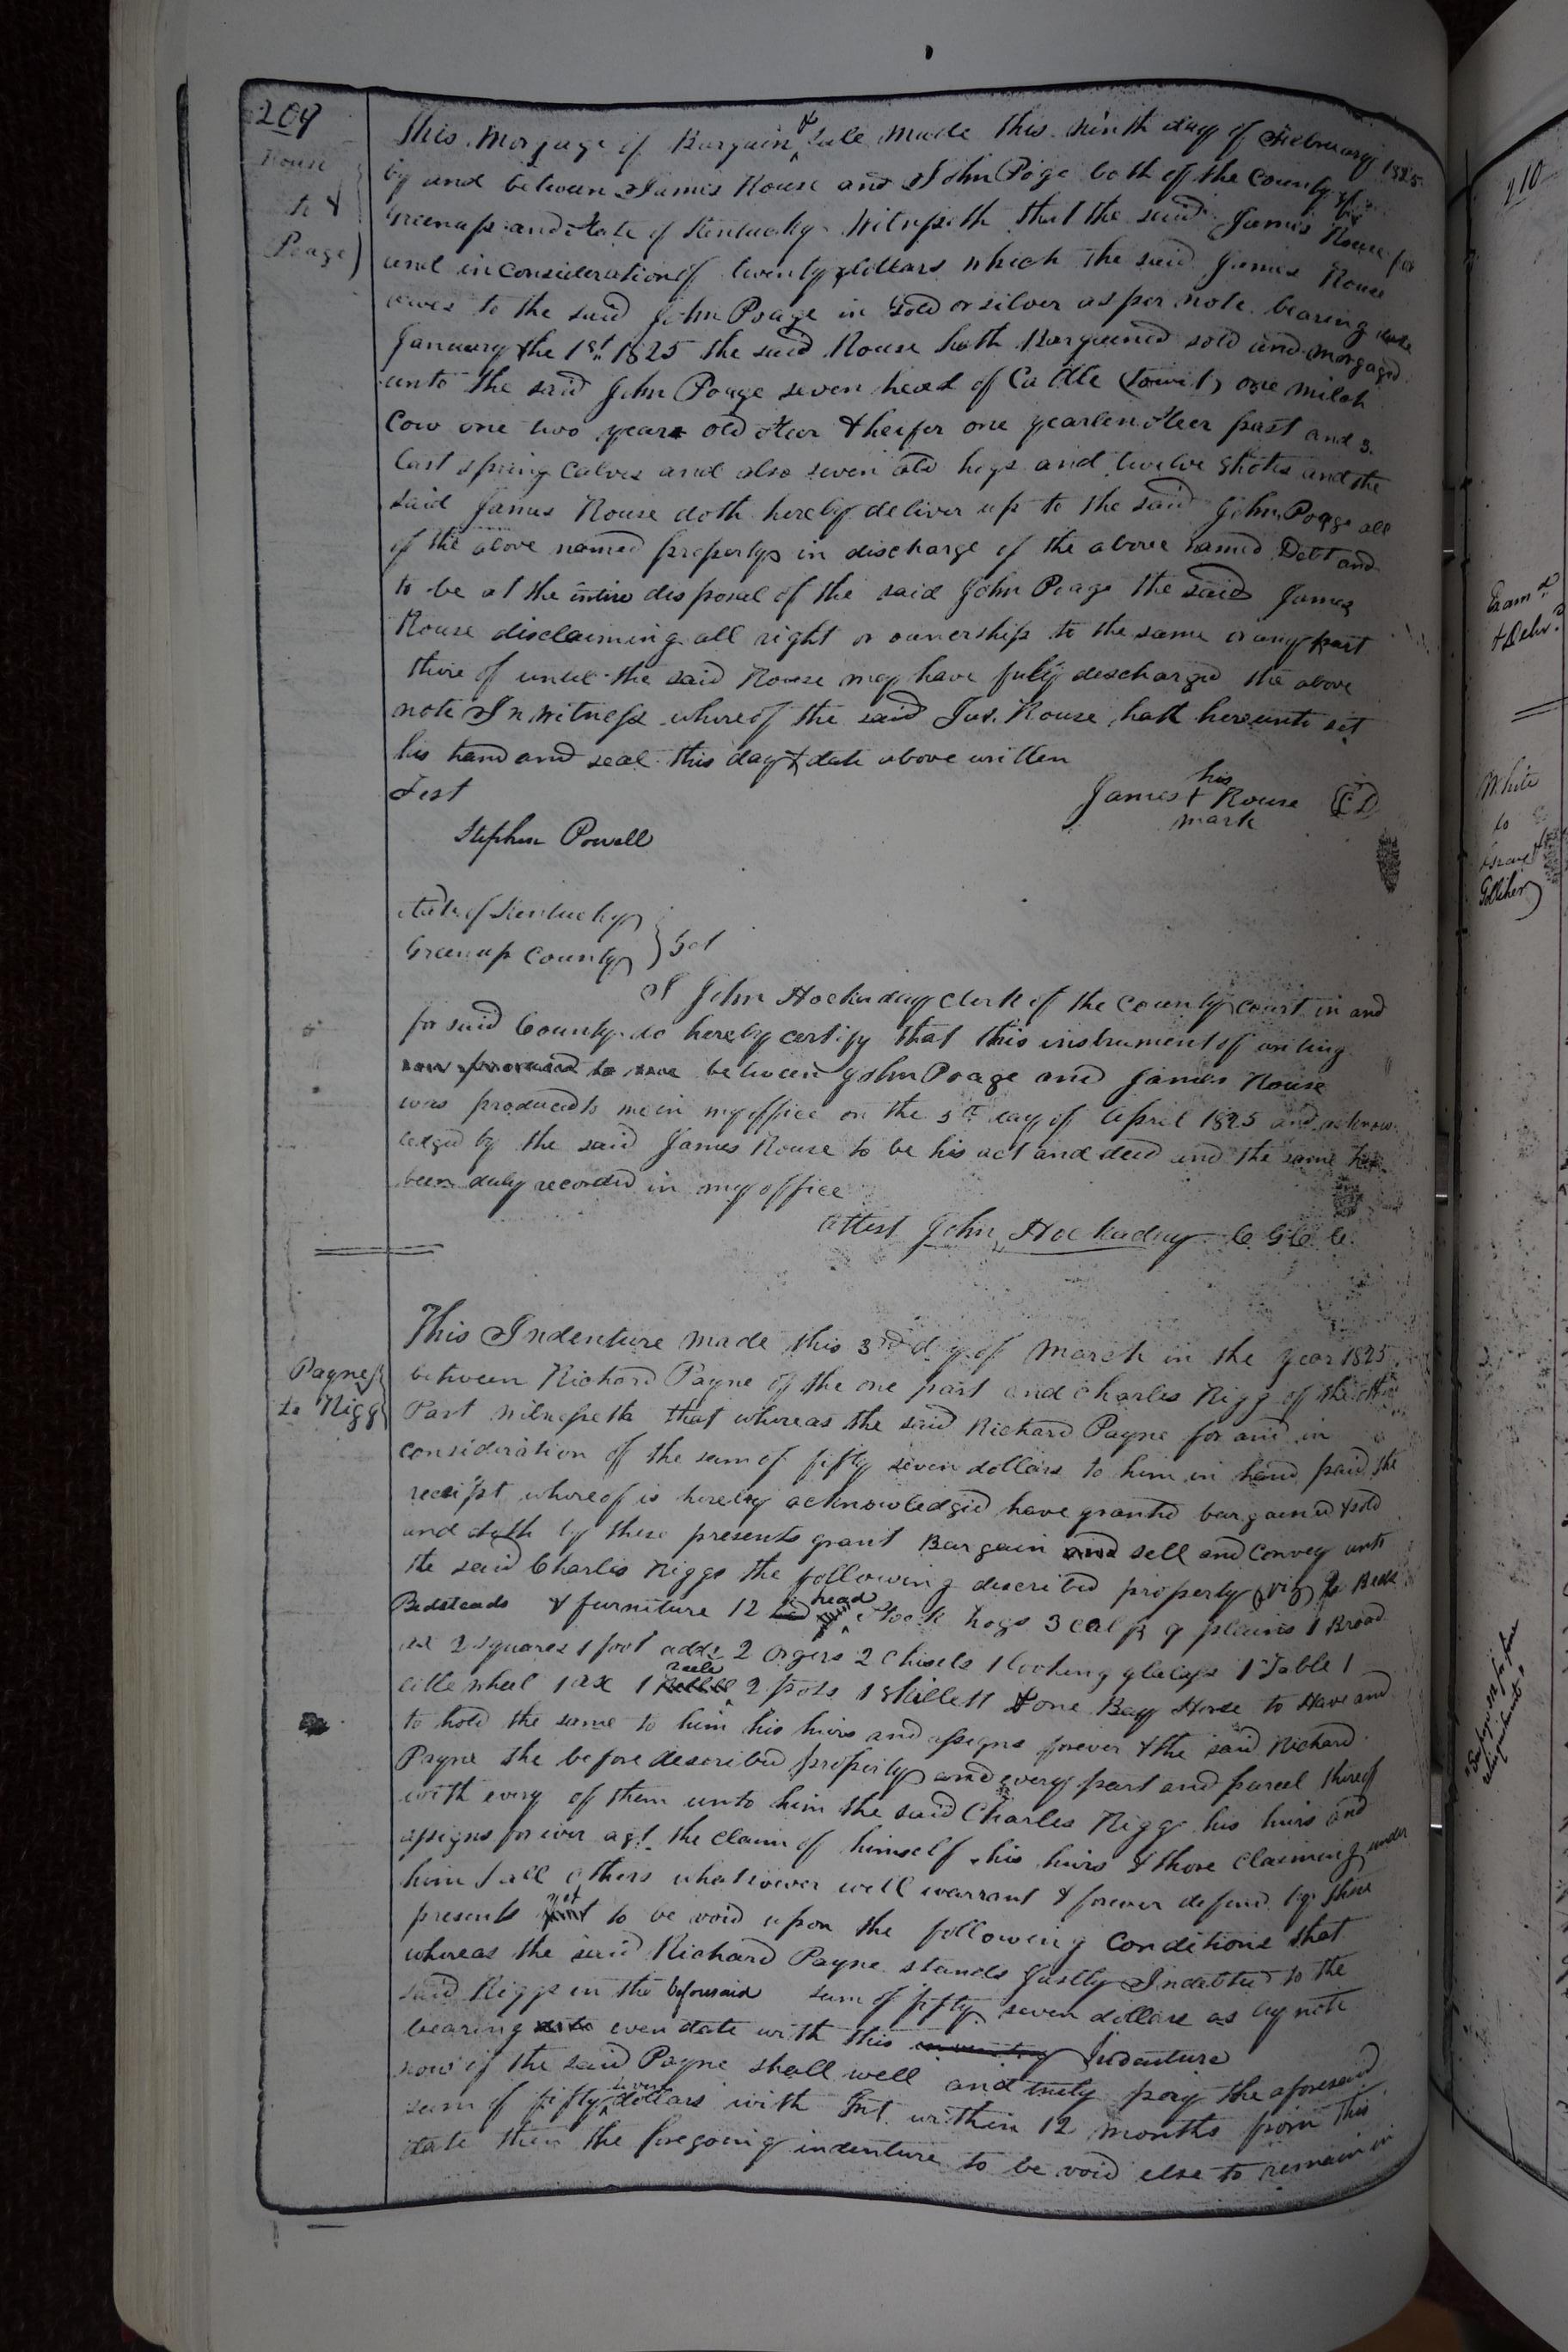 209
Rouse
to
Poage
This Morgage of Bargain & Sale Made this ninth day of February 1825
by and between James Rouse and John Poge both of the County of
Greenup and State of Kentucky Witnesseth that the said James Rouse for
and in consideration of twenty dollars which the said James Rouse
owes to the said John Poage in Gold or silver as per note bearing date
January the 1st 1825 the said Rouse hath Bargained sold and morgaged
unto the said John Poage seven head of Cattle (towit) one milch
Cow one two year old steer & heifer one yearlen steer past and 3
last spring Calves and also seven old hogs and twelve Shotes and the
said James Rouse doth hereby deliver up to the said John Poage all
of the above named property in discharge of the above named Debt and
to be at the intire disposal of the said John Poage the said James
Rouse disclaiming all right or ownership to the same or any part
there of untill the said Rouse may have fully descharged the above
note In Witness whereof the said Jas. Rouse hath hereunto set
his hand and seal this day & date above written
Test
his
James + Rouse
mark
Stephen Powell
State of Kentucky
Greenup County } Sct
I John Hockaday Clerk of the County Court in and
for said County do hereby certify that this instrument of writing
between John Poage and James Rouse
was produced to me in my office on the 5th day of April 1825 and acknow
ledged by the said James Rouse to be his act and deed and the same has
been duly recorded in my office
Attest John Hockaday C G C C
Payne
to Rigg
This Indenture made this 3rd dy of March in the year 1825
between Richard Payne of the one part and Charles Rigg of the other
Part witnesseth that whereas the said Richard Payne for and in
consideration of the sum of fifty seven dollars to him in hand paid the
receipt whereof is hereby acknowledged have granted bargained & sold
and doth by these presents grant Bargain and sell and Convey unto
the said Charles Riggs the following described property (viz) 2 Beds
Bedsteads & furniture 12 head Stock hogs 3 calfs 9 plains 1 Broad
ax 2 squares 1 foot adds 2 orgers 2 Chisels 1 looking glass 1 Table 1
little wheel 1 ax 1 reele 2 pots 1 skillett & one Bay Horse to Have and
to hold the same to him his heirs and assigns forever & the said Richard
Payne the before described property and every part and parcel thereof
with every of them unto him the said Charles Rigg his heirs and
assigns for ever agt. the Claim of himself his heirs & those Claiming under
him & all others whatsoever will warrant & forever defend by these
presents yet to be void upon the following Conditions that
whereas the said Richard Payne stands Justly Indebted to the
said Riggs in the beforesaid sum of fifty seven dollars as by note
bearing even date with this Indenture
now if the said Payne shall well and truly pay the aforesaid
sum of fifty seven dollars with Int. within 12 months from this
date then the foregoing indenture to be void else to remain in
210
Examd.
& Delvd.
White
to
Golliher